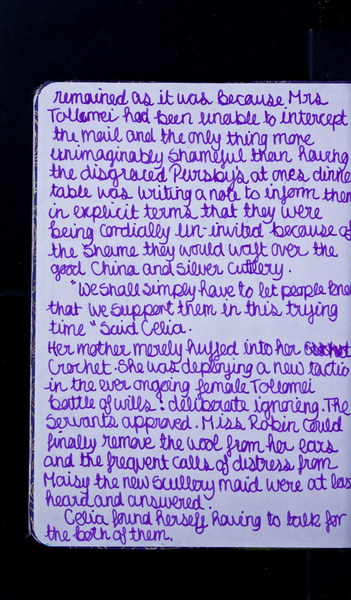 remained as it was because Mrs
Tollomei had been unable to intercept
the mail and the only thing more
unimaginably shameful than having
the disgraced Pursbys, at ones dinne
table was writing a note to inform them
in explicit terms that they were
being cordially un-invited because of
the shame they would waft over the
good China and silver Cutlery.
"We shall simply have to let people
that we support them in this trying
time" said Celia.
Her mother merely huffed into her
Crochet. She was deploying a new tactic
in the ever ongoing female Tollomei
battle of wills : deliberate ignoring. The
Servants approved. Miss Robin could
finally remove the wool from her ears
and the frequent calls of distress from
Maisy the new scullery maid were at las
heard and answered.
Celia found herself having to talk for
the both of them.